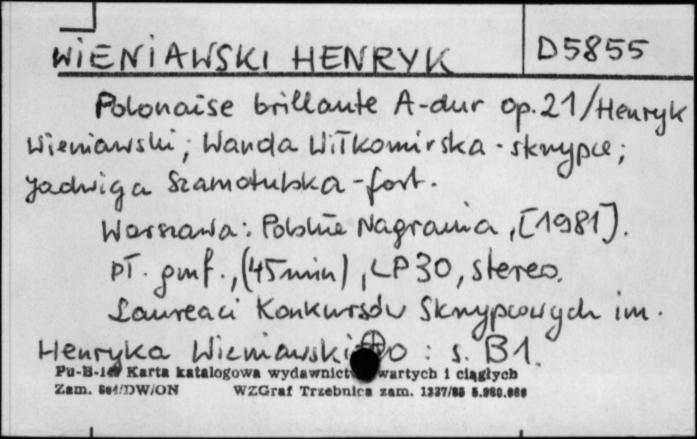 WIENIAWSKI HENRYK D5855
Polonaise brillante A-dur op. 21 / Henryk
Wieniawski ; Wanda Wiłkomirska - skrzypce ;
Jadwiga Szamotulska - fort.
Warszawa : Polskie Nagrania , [1981].
pł. gmf., (45 min) , LP30 , stereo.
Laureaci Konkursów Skrzypcowych im.
Henryka Wieniawskiego : s. B1.
Karta katalogowa wydawnictw zwartych i ciągłych
Zam. DW/ON WZGraf Trzebnica zam.